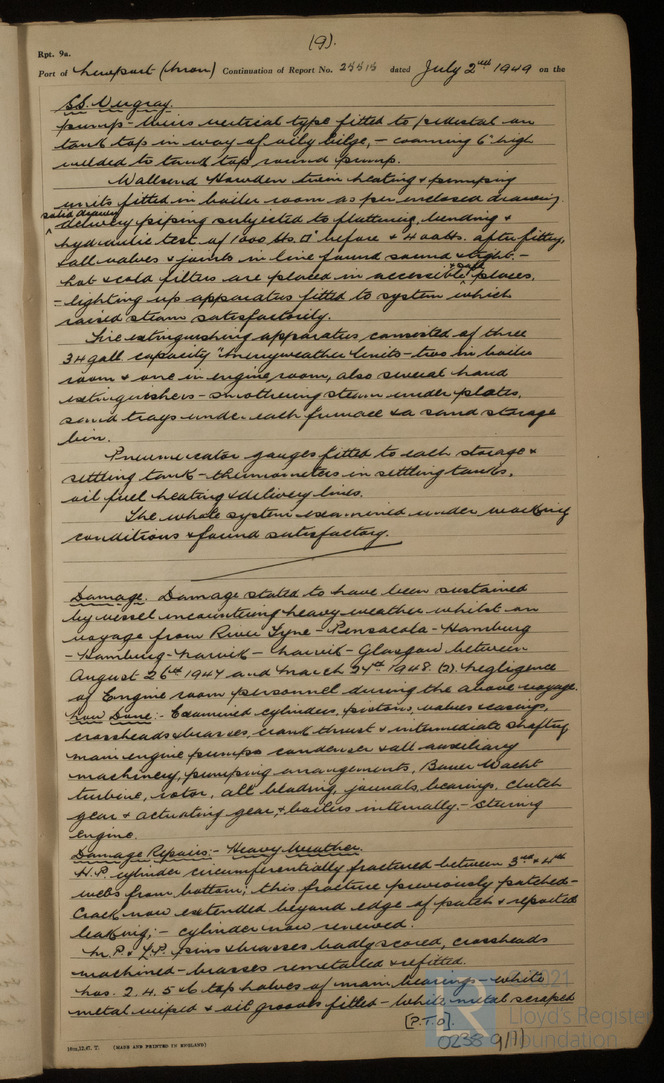 (9).
Rpt. 9a.
Port of Newport (Mon) Continuation of Report No. dated July 2nd 1949 on the
S.S.
pump - Weirs vertical type fitted to pedestal on
tank top in way of oily bilge, - coaming 6" high
welded to tank top round pump.
Wallsend Howden twin heating & pumping
units fitted in boiler room as per enclosed drawing
solid drawn
delivery piping subjected to flattening, bending &
hydraulic test of 1000 lbs. □" before & 400 lbs. after fitting,
& all valves & joints in line found sound & tight. -
hot & cold filters are placed in accessible & safe places,
- lighting up apparatus fitted to system which
raised steam satisfactorily.
Fire extinguishing apparatus consisted of three
34 gall capacity "Merryweather" units - two in boiler
room & one in engine room, also several hand
extinguishers - smothering steam under plates,
sand trays under each furnace & a sand storage
bin.
Pneumercator gauges fitted to each storage &
settling tank - thermometers in settling tanks,
oil fuel heating & delivery lines.
The whole system examined under working
conditions & found satisfactory.
Damage. Damage stated to have been sustained
by vessel encountering heavy weather whilst on
voyage from River Tyne - Pensacola - Hamburg
- Hamburg - Narvik - Narvik - Glasgow between
August 26th 1947 and March 24th 1948. (2). Negligence
of Engine room personnel during the above voyage.
Now Done: - Examined cylinders, pistons, valves & casings,
crossheads & brasses, crank thrust & intermediate shafting
main engine pumps condenser & all auxiliary
machinery, pumping arrangements, Bauer Wacht
turbine, rotor, all blading, journals, bearings, clutch
gear & actuating gear, & boilers internally. - Steering
engine.
Damage Repairs: - Heavy Weather.
H.P. cylinder circumferentially fractured between 3rd & 4th
webs from bottom; this fracture previously patched -
Crack now extended beyond edge of patch & reported
leaking; - cylinder now renewed.
M.P. & L.P. pins & brasses badly scored, crossheads
machined - brasses remetalled & refitted.
Nos. 2. 4. 5 & 6 top halves of main bearings - white
metal wiped & oil grooves filled - White metal scraped
(P.T.O).
10m,12,47. T. (MADE AND PRINTED IN ENGLAND)
2021
Lloyd's Register
Foundation
0238 9/11)